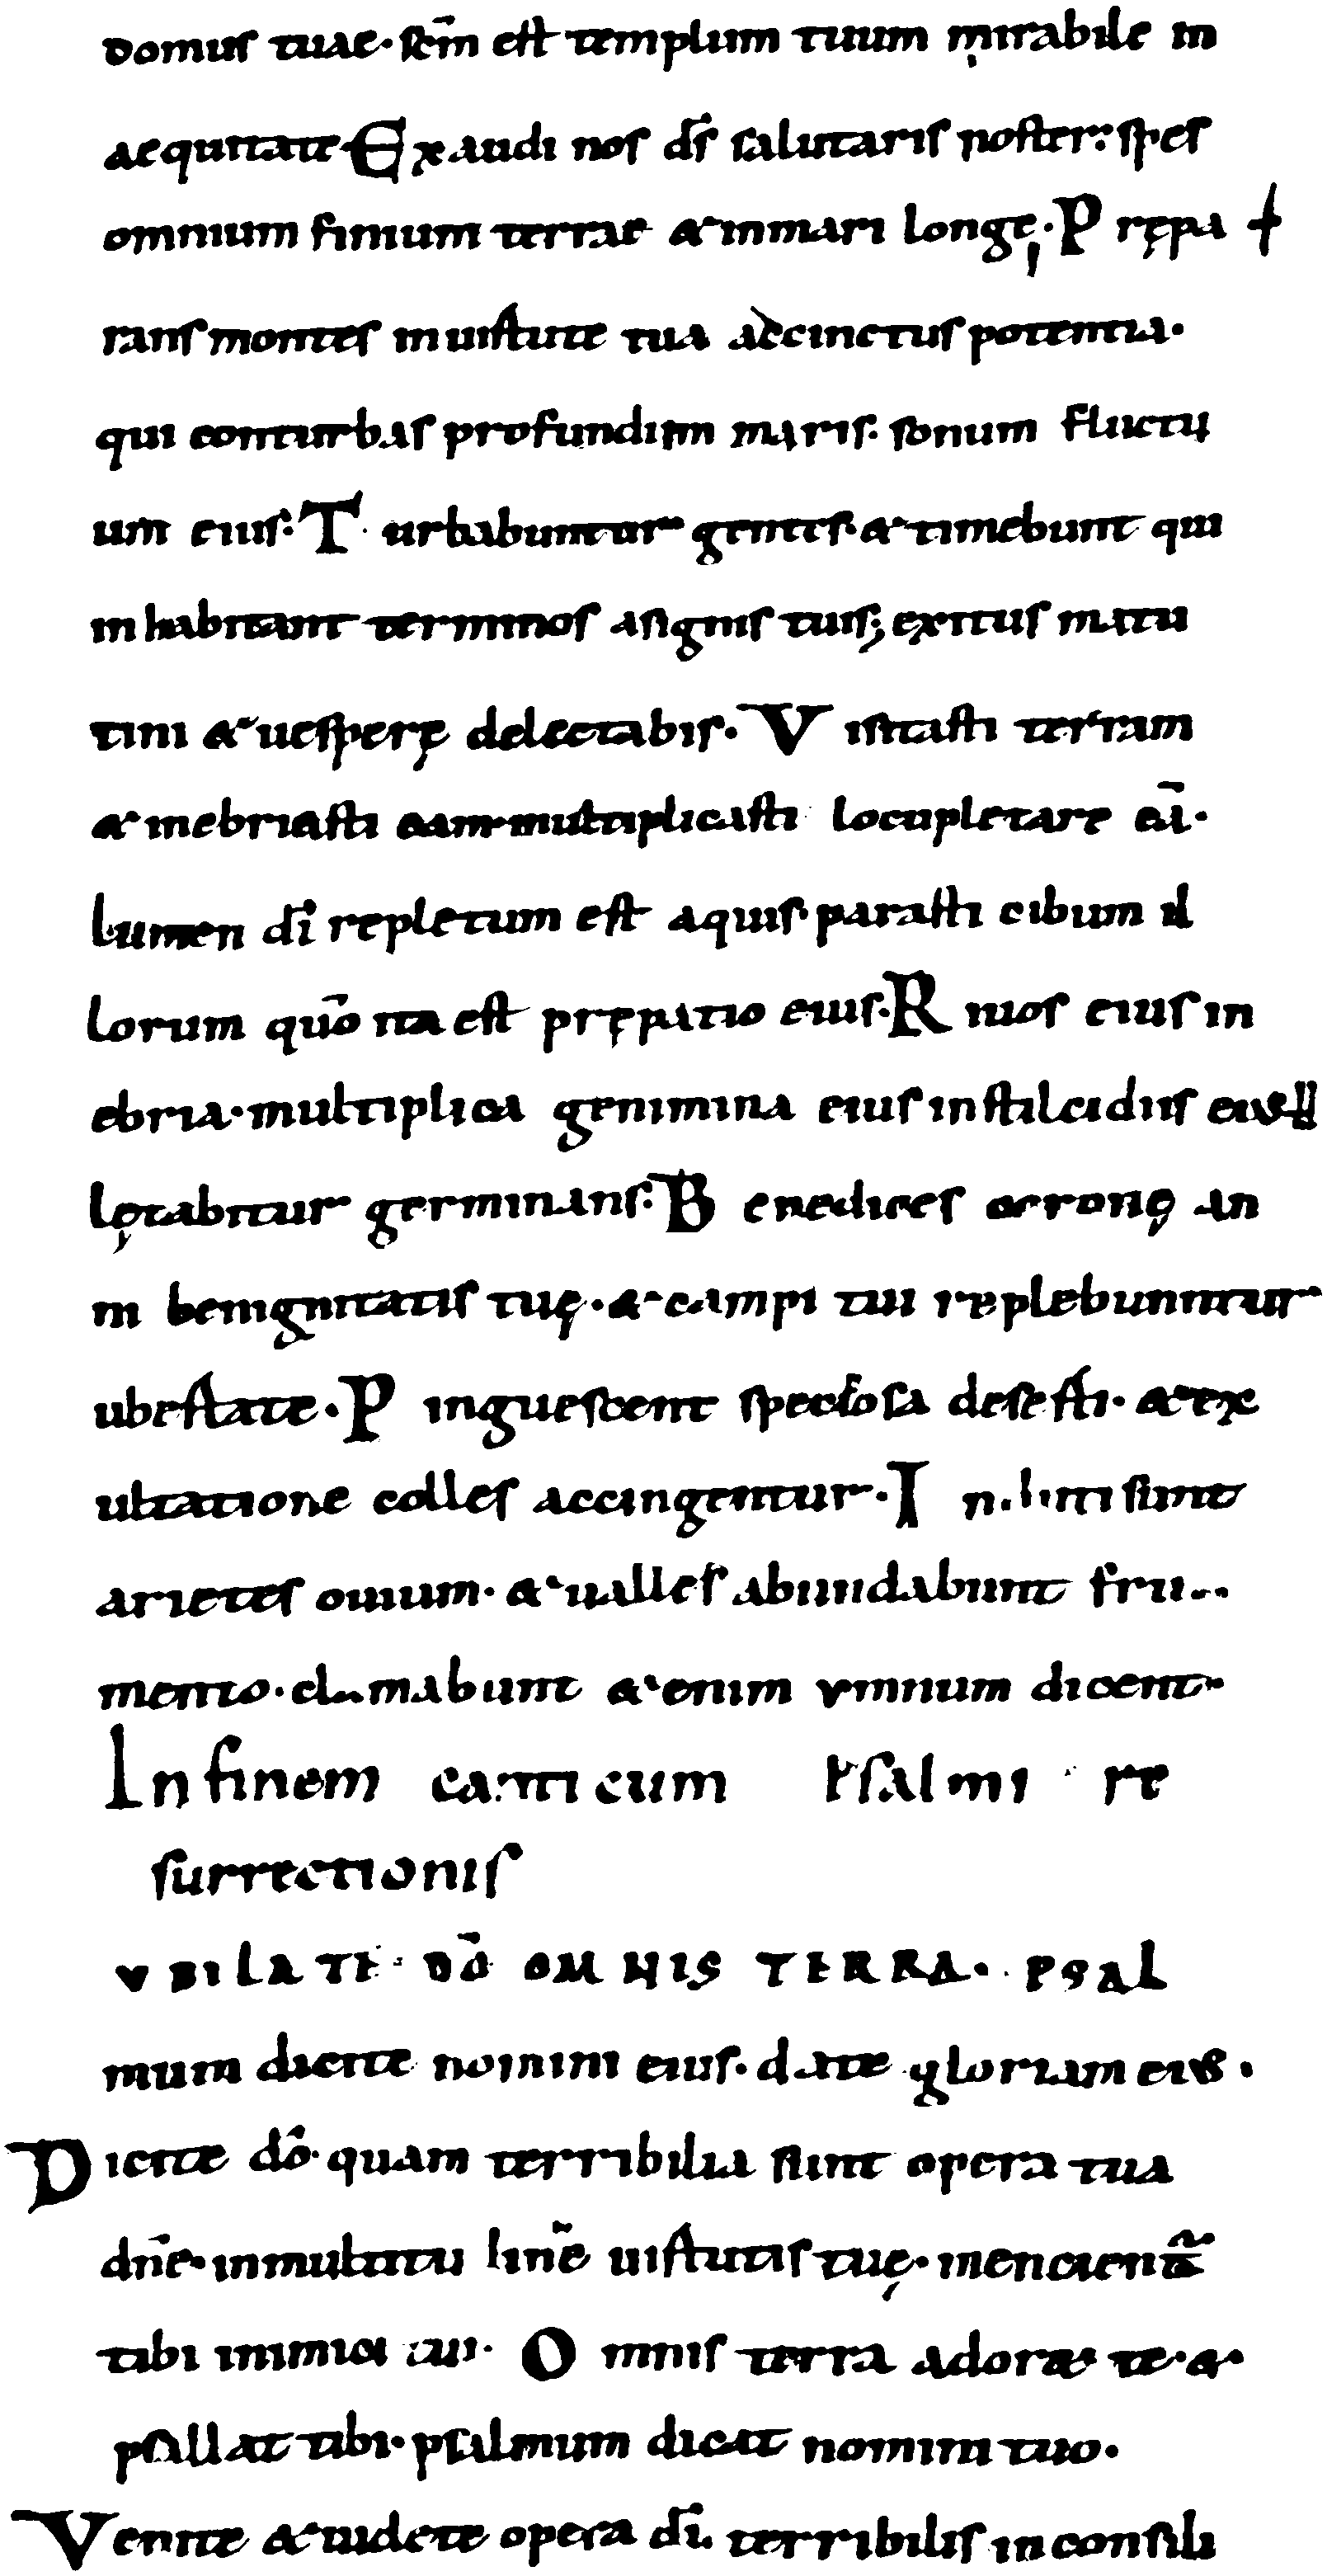 domus tuae· sc̄m est templum tuum mirabile in
aequitate Exaudi nos d̄s salutaris noster: spes
omnium finium terrae & in mari longę· Prępa
rans montes in uirtute tua accinctus potentia·
qui conturbas profundum maris· sonum fluctu
um eius· Turbabuntur gentes· & timebunt qui
inhabitant terminos a signis tuis; exitus matu
tini & uesperę delectabis· Visitasti terram
& inebriasti eam multiplicasti locupletare eā·
Lumen d̄i repletum est aquis· parasti cibum il
lorum quō ita est pręparatio eius· Riuos eius in
ebria· multiplica genimina eius in stilcidiis eius
lętabitur germinans· Benedices coronę an
ni benignitatis tuę· & campi tui replebuntur
ubertate· Pinguescent speciosa deserti· & ex
ultatione colles accingentur· Induti sunt
arietes ouium· & ualles abundabunt fru
mento· clamabunt & enim ymnum dicent·
In finem canticum Psalmi re
surrectionis
VBILATE DŌ OMNIS TERRA· PSAL
mum dicite nomini eius· date gloriam eius·
Dicite dō· quam terribilia sunt opera tua
dn̄e· in multitudine uirtutis tuę· mencient̄
tibi inimici tui· Omnis terra ador& te· &
psallat tibi· psalmum dicat nomini tuo·
Venite & uidete opera d̄i terribilis in consili